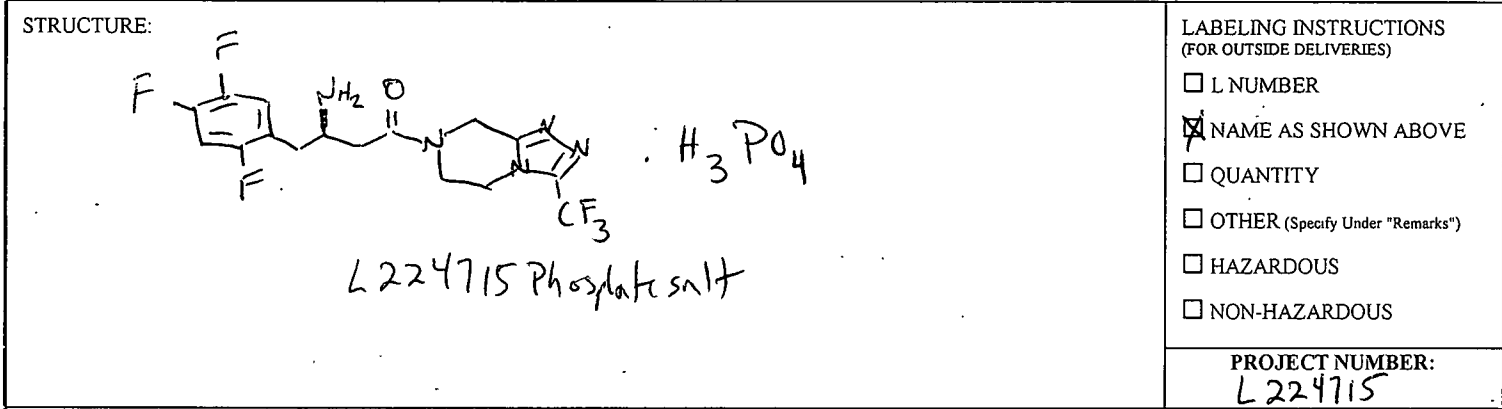 STRUCTURE:
F
F
NH2
O
N
N
N
N
F
CF3
. H3PO4
L224715 Phosphate salt
LABELING INSTRUCTIONS
(FOR OUTSIDE DELIVERIES)
L NUMBER
NAME AS SHOWN ABOVE
QUANTITY
OTHER (Specify Under "Remarks")
HAZARDOUS
NON-HAZARDOUS
PROJECT NUMBER:
L224715